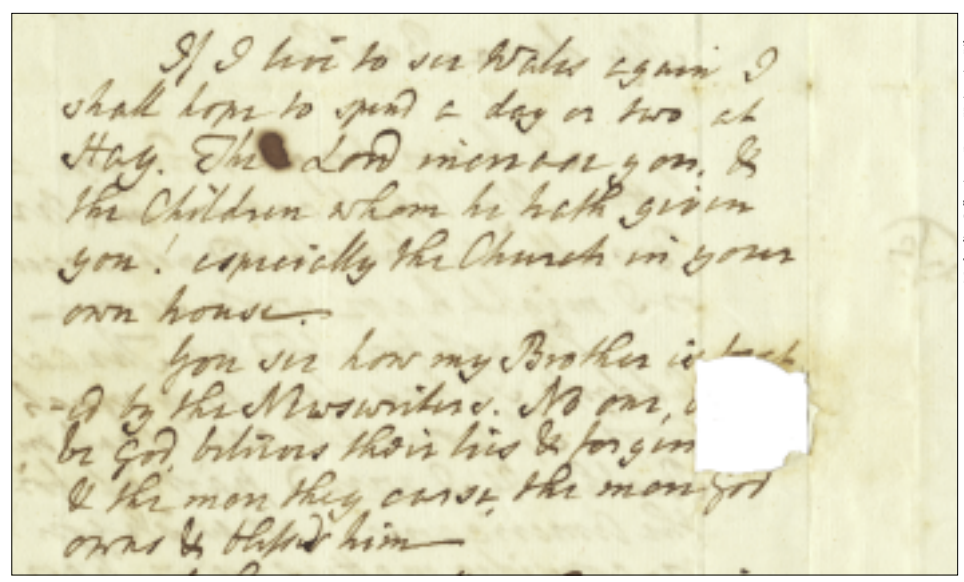 If I live to see Wales again I
shall hope to spend a day or two at
Hay. The Lord increase you, &
the Children whom he hath given
you! especially the Church in your
own house.
You see how my Brother is
-ed by the Newswriters. No one,
be God, believes their lies &
& the more they curse, the more God
owns & blesses him